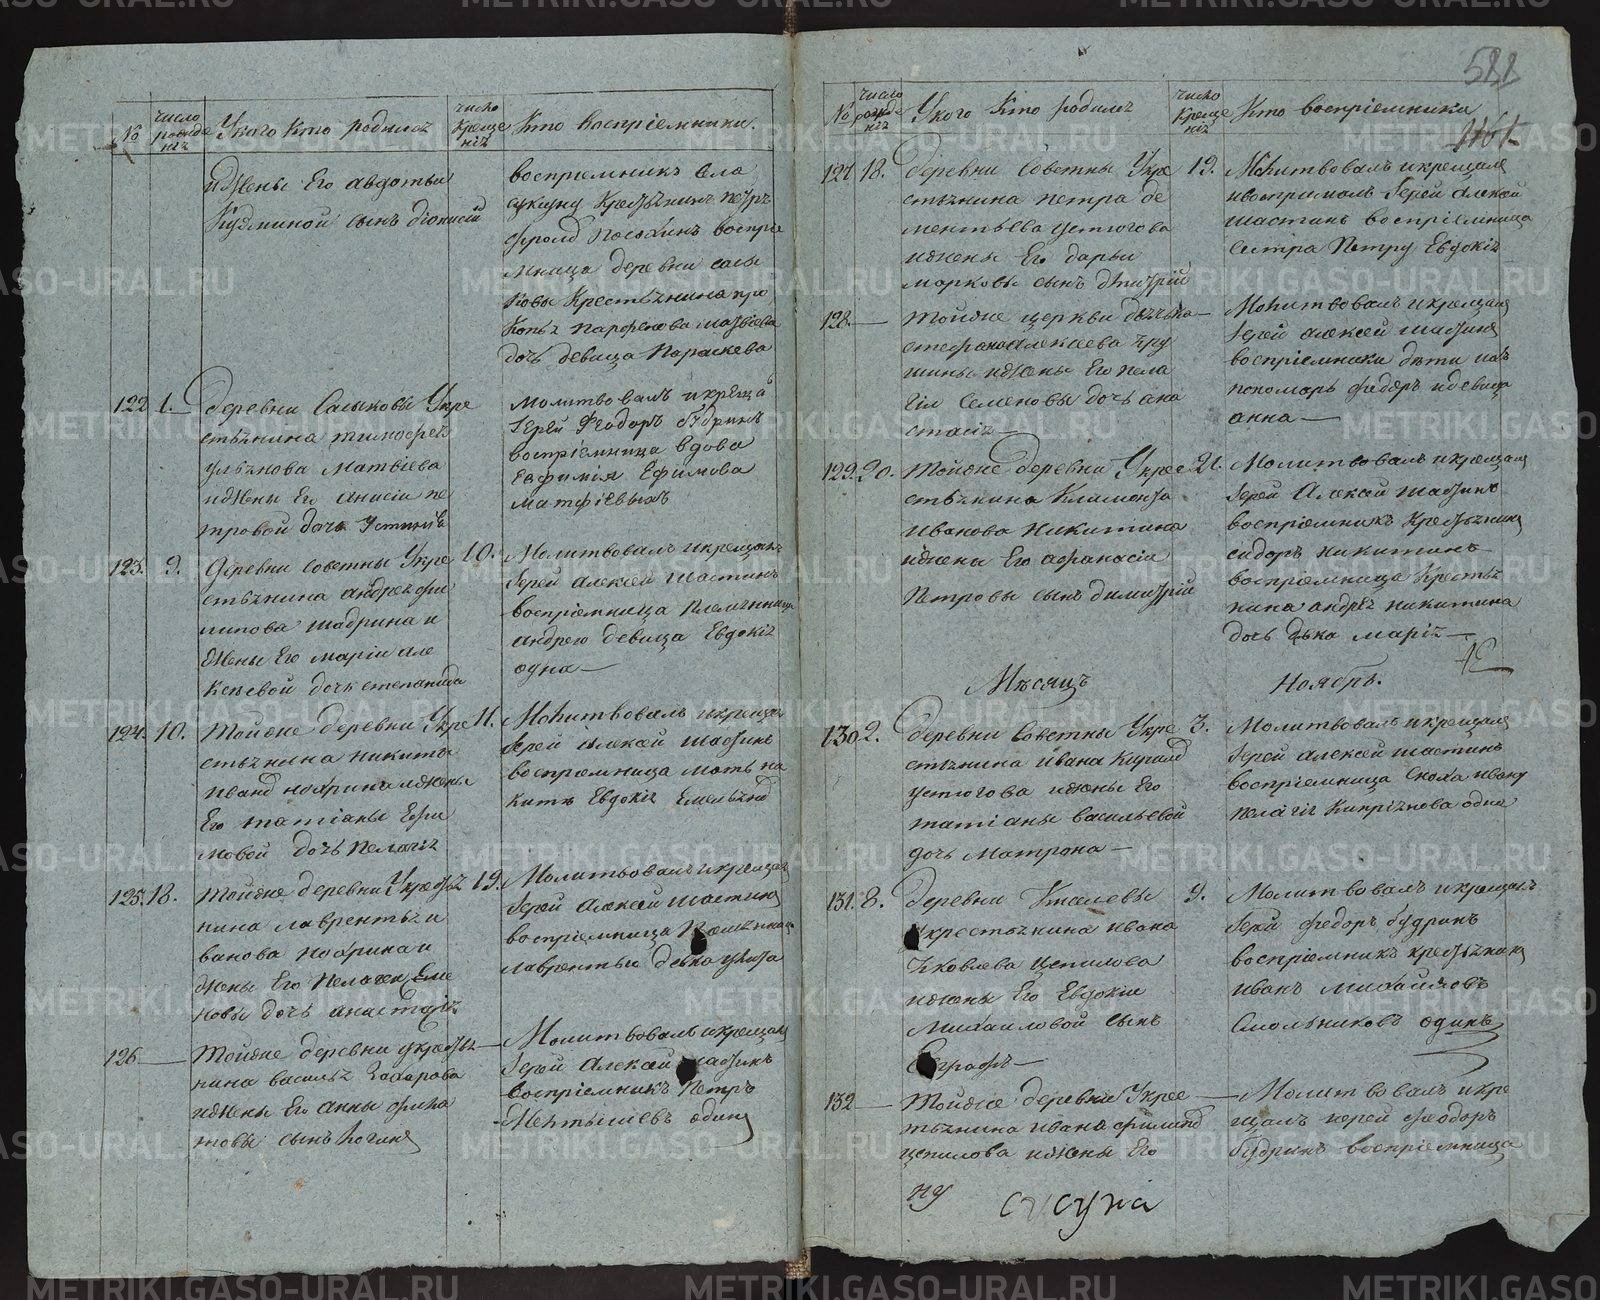 588
1161
№
число рожденія
У кого кто родился
число крещенія
Кто восприемники.
и жены Его авдотьи
Кузминой сынъ дионисій
восприемникъ села
Петръ
восприе
мница деревни салы
ковы Крестьянина про
копья парфенова матвіева
дочь девица Параскева
122 1. деревни Салыковы У кре
стьянина тимофея
ульянова Матвіева
и жены Его анисіи пе
тровой дочь Устинія
молитвовалъ и креща
Іерей Феодоръ Будринъ
восприемница вдова
Евфимія Ефимова
Матфіевыхъ
123. 9. деревни советны У кре
стьянина андрея фи
липова шадрина и
жены Его маріи але
ксеевой дочь степанида
10. Молитвовалъ и крещалъ
Іерей алексей шастинъ
восприемница племянница
андрею девица Евдокія
одна—
124. 10. тойже деревни У кре
стьянина никиты
иванова и жены
Его татіаны Ефи
мовой дочь пелагія
11. Молитвовалъ и крещалъ
Іерей алексей шастинъ
восприемница мать ни
ките Евдокія Емельянова
125. 18. тойже деревни У крестья
нина лаврентья и
ванова и
жены Его пелагеи Семе
новы дочь анастасія
19. Молитвовалъ и крещалъ
Іерей алексей шастинъ
восприемница племянница
лаврентью девка улита
126 — тойже деревни у крестья—
нина василья захарова
и жены Его анны фила
товы сынъ логинъ
Молитвовалъ и крещалъ
Іерей алексей шастинъ
восприемникъ Петръ
одинъ
№
число рожденія
У кого кто родился
число крещенія
Кто восприемники
127 18. деревни советны У кре
стьянина петра де
ментьева устюгова
и жены Его дарьи
марковы сынъ дмитрій
19. Молитвовалъ и крещалъ
и восприималъ Іерей алексей
шастинъ восприемница
сестра Петру Евдокія
128. — тойже церкви дьячька—
стефана алексеева тру
шины и жены Его пела
гіи Семеновы дочь ана
стасія—
Молитвовалъ и крещалъ
Іерей алексей шастинъ
восприемники дети ихъ
пономарь федоръ и девица
анна—
129. 20. тойже деревни У кре
стьянина Климонта
Иванова Никитина
и жены Его афанасіи
Петровы сынъ димитрій
21. Молитвовалъ и крещалъ
Іерей Алексей шастинъ
восприемникъ крестьянинъ
сидоръ никитинъ
восприемница Крестья
нина андрея никитина
дочь девка марія—
Месяцъ Ноябрь.
130 2. деревни советны У кре
стьянина ивана Кирилова
устюгова и жены Его
татіаны васильевой
дочь матрона—
3. Молитвовалъ и крещалъ
Іерей алексей шастинъ
восприемница сноха ивану
пелагія Киприянова одна
131. 8. деревни Киселевы
У крестьянина ивана
Яковлева цепилова
и жены Его Евдокіи
Михайловой сынъ
Евграфъ—
9. Молитвовалъ и крещалъ
Іерей федоръ будринъ
восприемникъ крестьянинъ
иванъ михайловъ
смольниковъ одинъ
132 — Тойже деревни У кре—
стьянина ивана филипова
цепилова и жены Его
Молитвовалъ и кре
щалъ іерей феодоръ
будринъ восприемница
ну
сусуна
METRIKI.GASO-URAL.RU